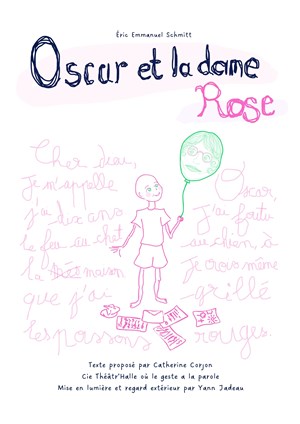 Éric Emmanuel Schmitt
Oscar et la dame
Rose
Cher dieu,
Je m'appelle Oscar,
j'ai dix ans J'ai foutu
le feu au chat au chien, à
la maison Je crois même
que j'ai grillé
les poissons rouges.
Texte proposé par Catherine Corjon
Cie Théâtr'Halle où le geste a la parole
Mise en lumière et regard extérieur par Yann Jadeau